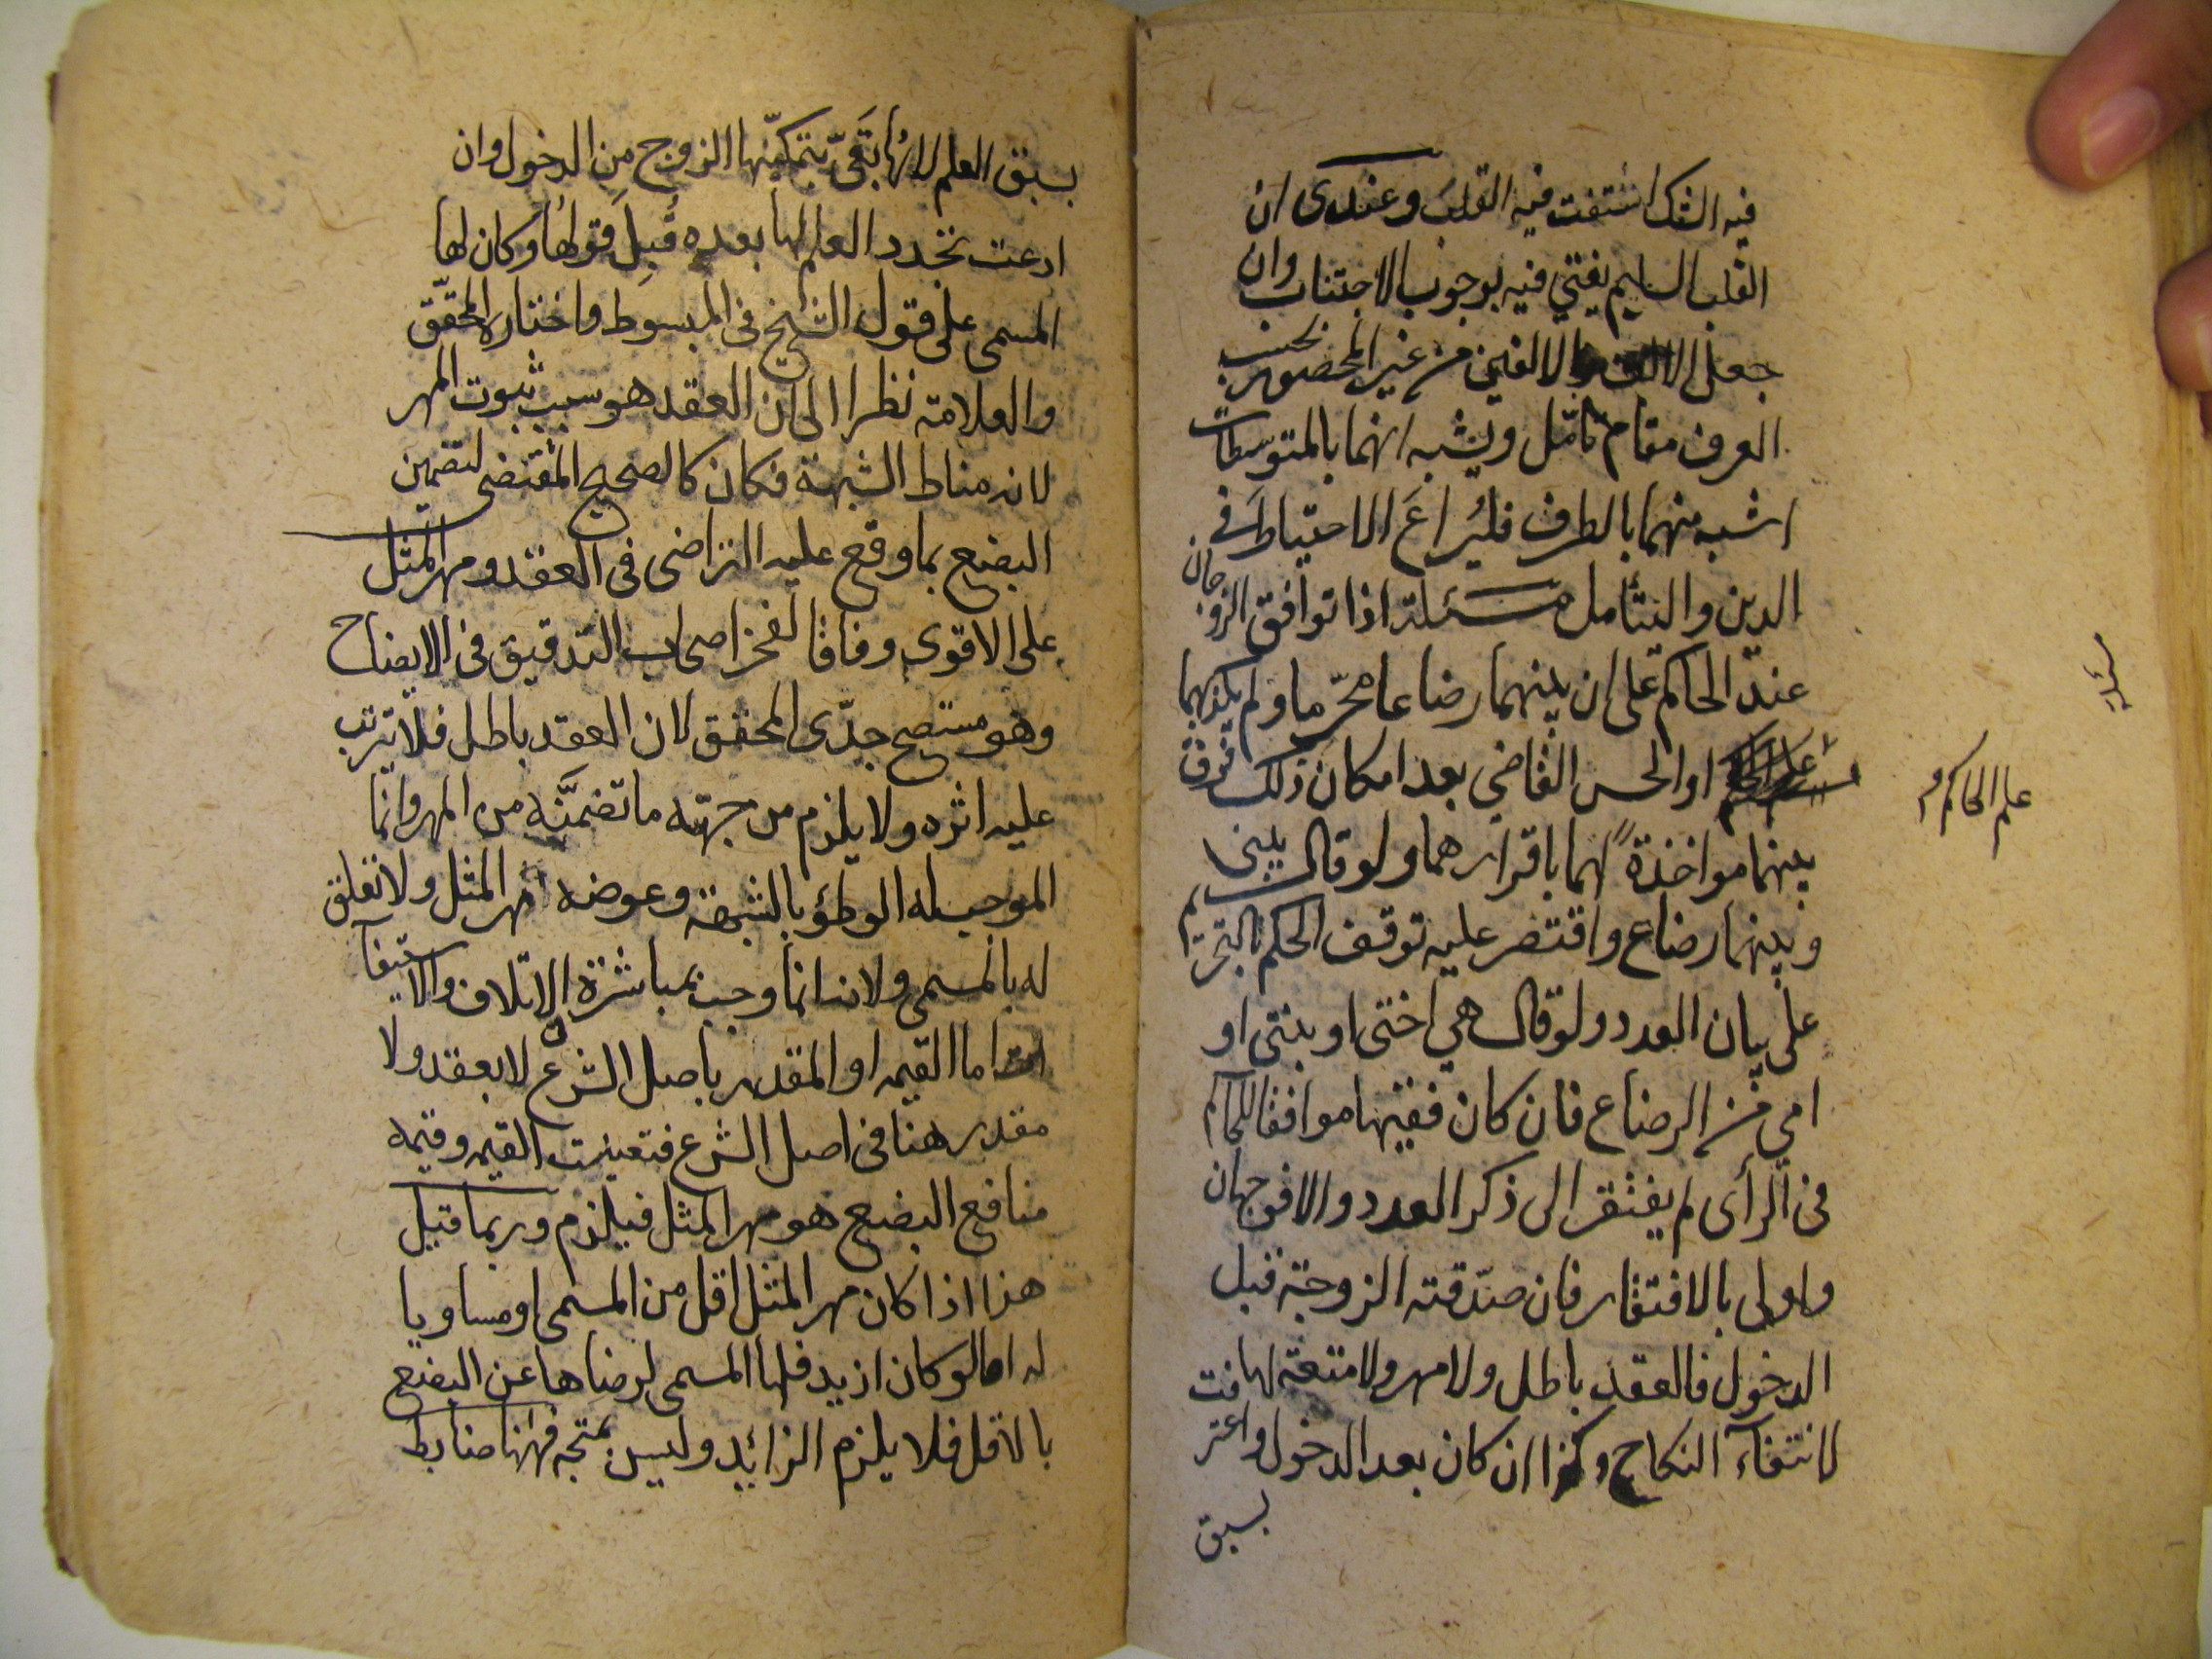 فيه الشك استفت فيه القلب وعندى ان
القلب السليم يفتي فيه بوجوب الاجتناب وان
جعل الالف والالفين من غير المحصور بحسب
العرف مقام تأمل ويشبه انهما بالمتوسطات
اشبه منهما بالطرف فليُراعَ الاحتياطَ في
الدين والتأمل مسئلة اذا توافق الزوجان
عند الحاكم على ان بينهما رضاعا محرّما ولم يكذبهما
او الحس القاضي بعد امكان ذلك فرق
بينهما مواخذةً لهما باقرارهما ولو قال بيني
وبينهما رضاع واقتصر عليه توقف الحكم بالتحريم
على بيان العدد ولو قال هي اختى او بنتى او
امي من الرضاع فان كان فقيها موافقا للحاكم
في الرأى لم يفتقر الى ذكر العدد والا فوجهان
واولى بالافتقار فان صدّقته الزوجة قبل
الدخول فالعقد باطل ولا مهر ولا متعة لها
لانتفاء النكاح وكذا ان كان بعد الدخول واعترفت
بسبق
علم الحاكم
بسبق العلم لانها بَغىّ بتمكينها الزوج مِن الدخول وان
ادعت تجدد العلم لها بعده قُبِلَ قولها وكان لها
المسمى على قول الشيخ فى المبسوط واختاره المحقّق
والعلامة نظرا الى ان العقد هو سبب ثبوت المهر
لانه مناط الشبهة فكان كالصحيح المقتضى لتضمين
البضع بما وقع عليه التراضى فى العقد ومهر المثل
على الاقوى وفاقا لفخر اصحاب التدقيق فى الايضاح
وهو مستصح جدّى المحقق لان العقد باطل فلا يترتب
عليه اثره ولا يلزم من جهته ما تضمنَّه من المهر وانما
الموجب له الوطؤ بالشبهة وعوضه مهر المثل ولا تعلق
له بالمسمى ولانه انما وجب بمباشرة الاتلاف والاستيفآ
اما القيمه او المقدر باصل الشرع لا بعقد ولا
مقدر هنا فى اصل الشرع فتعينت القيمه وقيمه
منافع البضع هو مهر المثل فيلزم وربما قيل
هذا اذا كان مهر المثل اقل من المسمى او مساويا
له اما لو كان ازيد فلها المسمى لرضاها عن البضع
بالاقل فلا يلزم الزائد وليس بمتجه فههنا ضابط